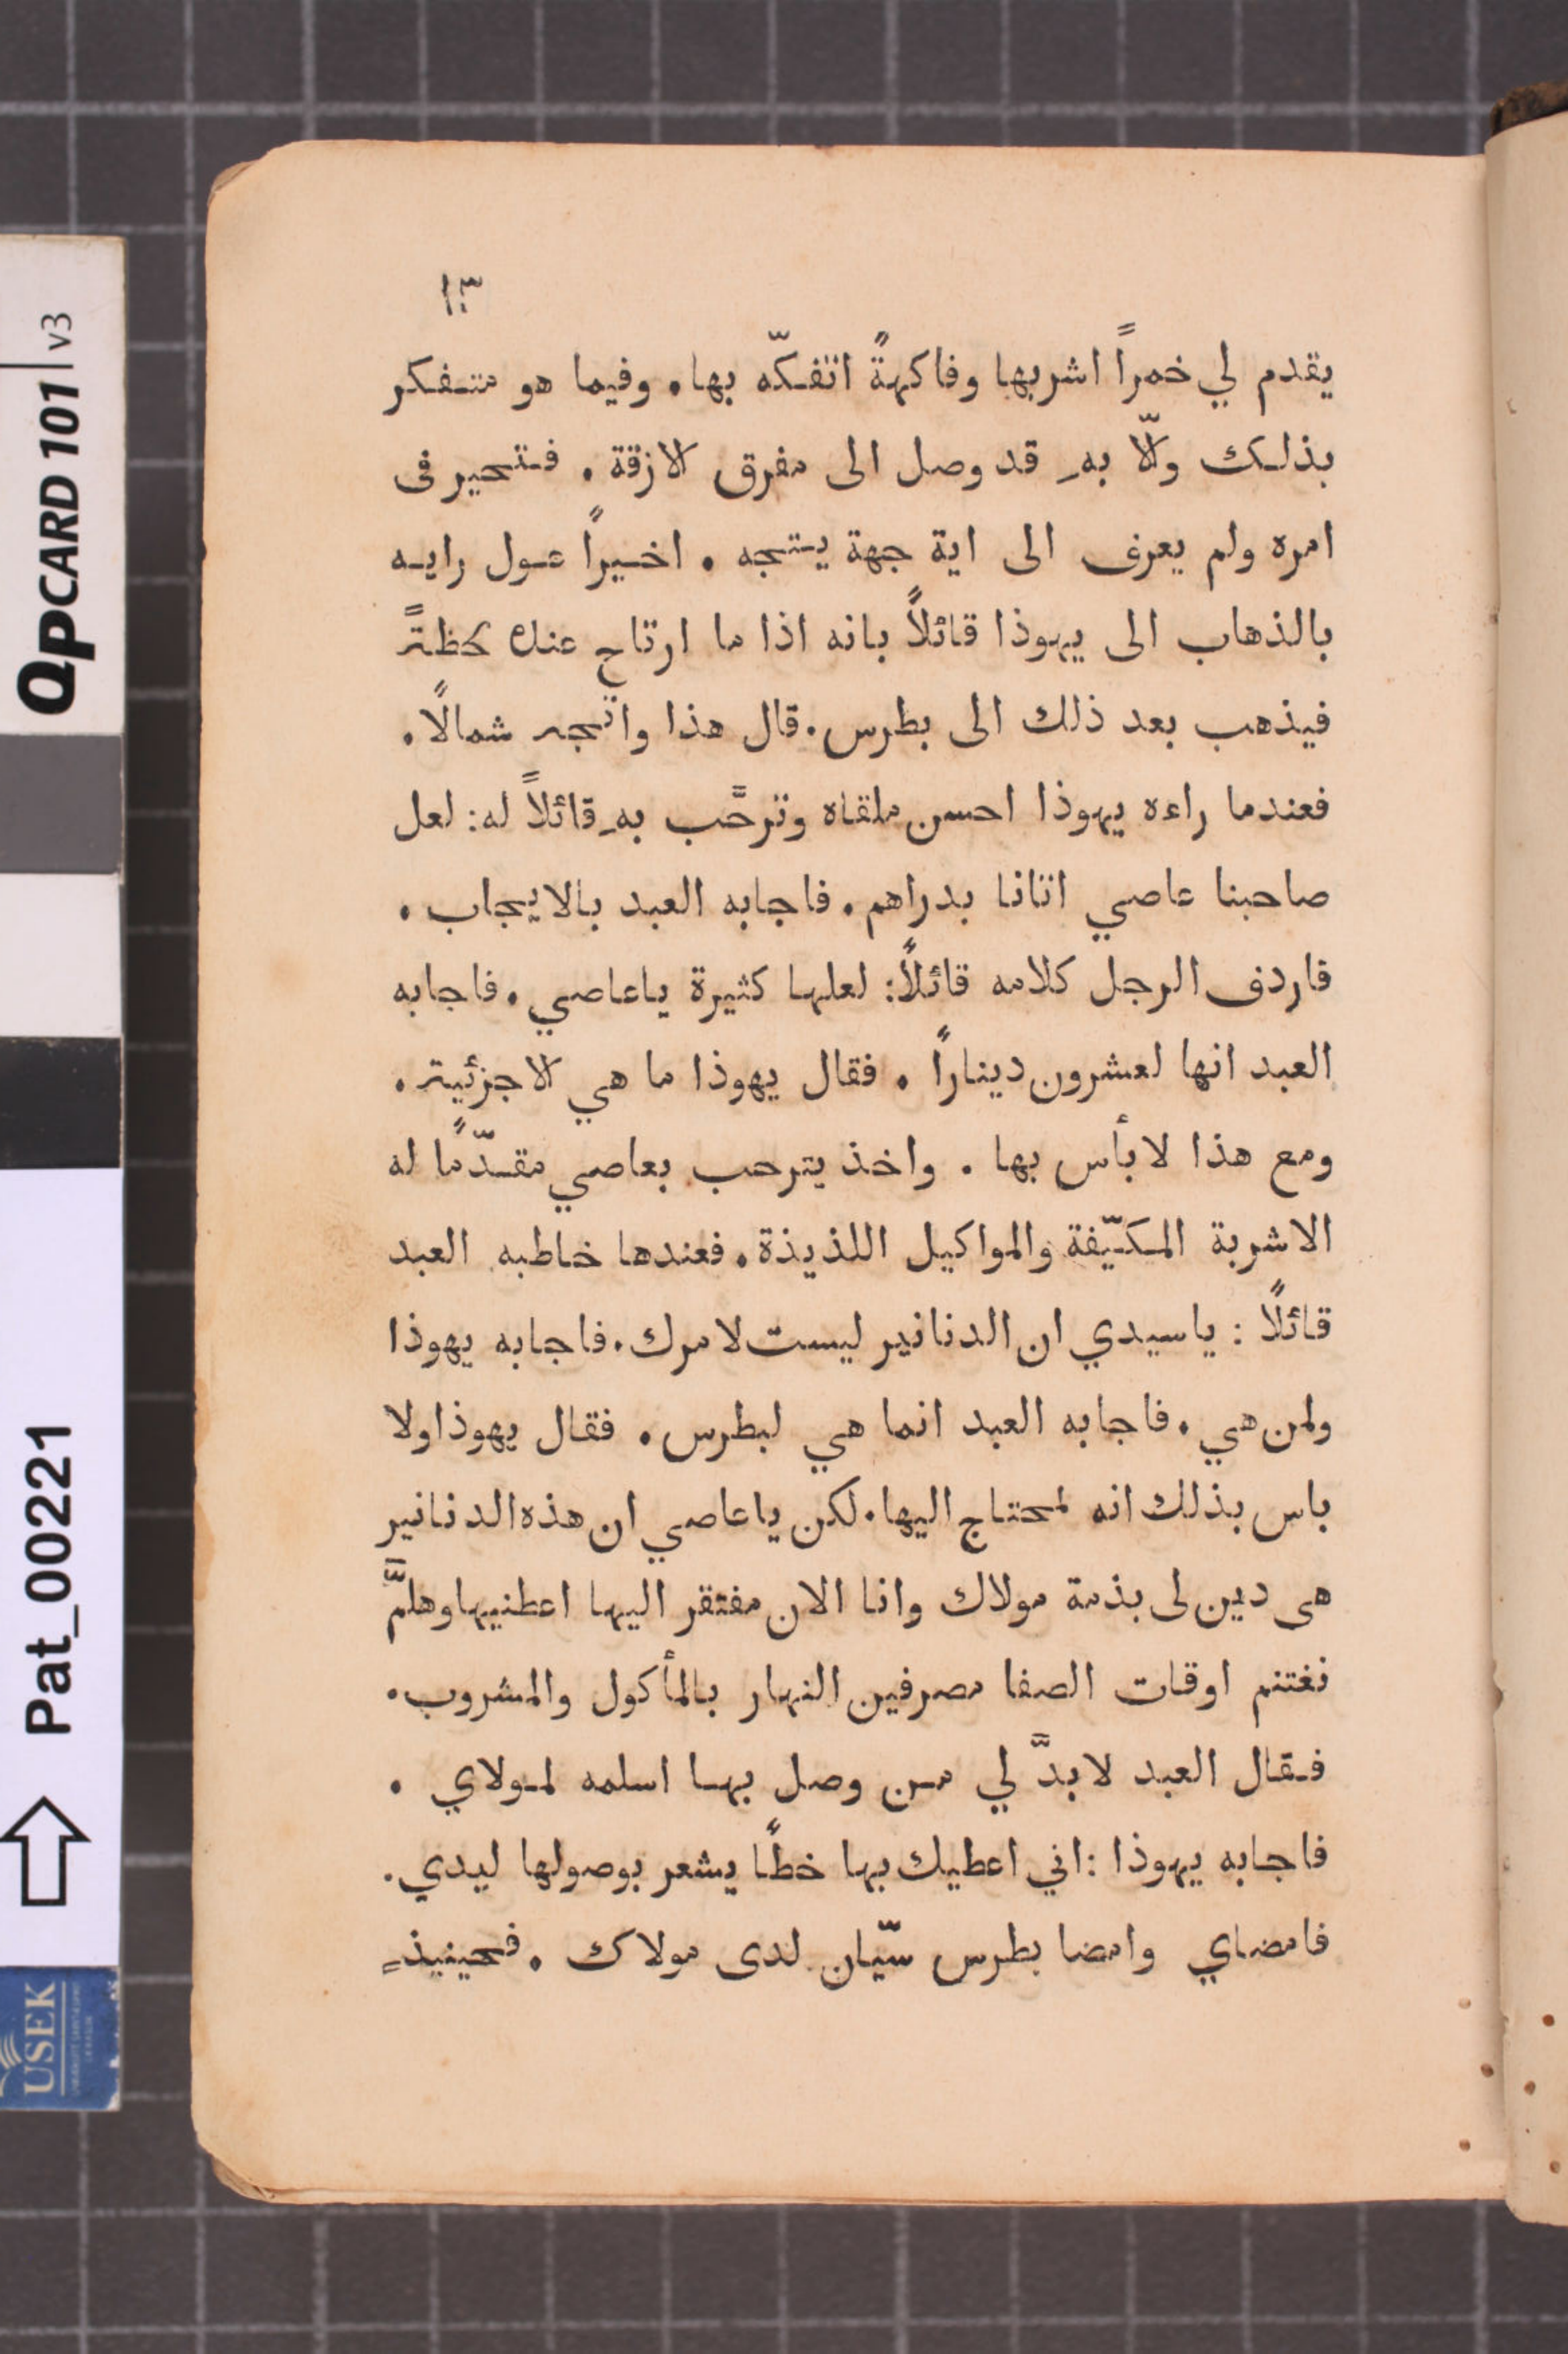 ١٣
يقدم لي خمراً اشربها وفاكهةً اتفكّه بها. وفيما هو متفكر
بذلك والّا بهِ قد وصل الى مفرق الازقة. فتحير فى
امره ولم يعرف الى اية جهة يتجه. اخيراً عول رايه
بالذهاب الى يهوذا قائلاً بانه اذا ما ارتاح عنده لحظةً
فيذهب بعد ذلك الى بطرس. قال هذا واتجه شمالًا.
فعندما راءه يهوذا احسن ملقاه وترحَّب بهِ قائلاً له: لعل
صاحبنا عاصي اتانا بدراهم. فاجابه العبد بالايجاب.
فاردف الرجل كلامه قائلاً: لعلها كثيرة ياعاصي. فاجابه
العبد انها لعشرون ديناراً. فقال يهوذا ما هي الا جزئية.
ومع هذا لا بأس بها. واخذ يترحب بعاصي مقدّمًا له
الاشربة المكيّفة والمواكيل اللذيذة. فعندها خاطبه العبد
قائلًا: ياسيدي ان الدنانير ليست لامرك. فاجابه يهوذا
ولمن هي. فاجابه العبد انما هي لبطرس. فقال يهوذا ولا
باس بذلك انه لمحتاج اليها. لكن ياعاصي ان هذه الدنانير
هى دين لى بذمة مولاك وانا الان مفتقر اليها اعطنيها وهلمَّ
نغتنم اوقات الصفا مصرفين النهار بالمأكول والمشروب.
فقال العبد لا بدَّ لي من وصل بها اسلمه لمولاي.
فاجابه يهوذا: اني اعطيك بها خطًا يشعر بوصولها ليدي.
فامضاي وامضا بطرس سيّان لدى مولاك. فحينيذٍ
QPCARD 101 v3
Pat_00221
USEK